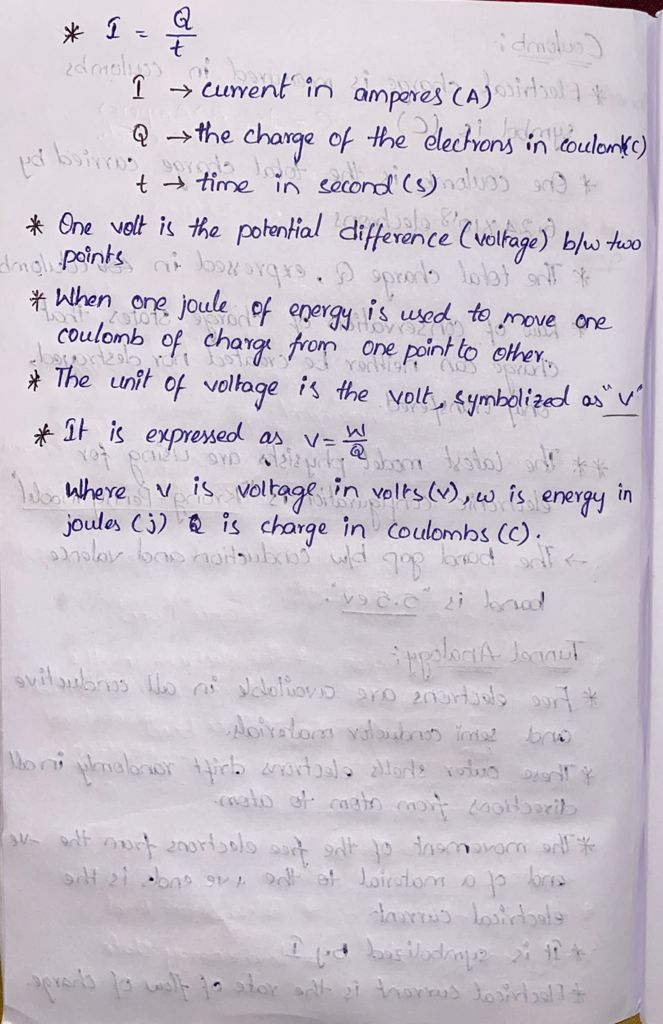 * I = Q/t
I → current in amperes (A)
Q → the charge of the electrons in coulomb(c)
t → time in second (s)
* One volt is the potential difference (voltage) b/w two
points.
* When one joule of energy is used to move one
coulomb of charge from one point to other.
* The unit of voltage is the volt, symbolized as "V"
* It is expressed as v = W/Q
where v is voltage in volts (v), w is energy in
joules (j) Q is charge in coulombs (C).